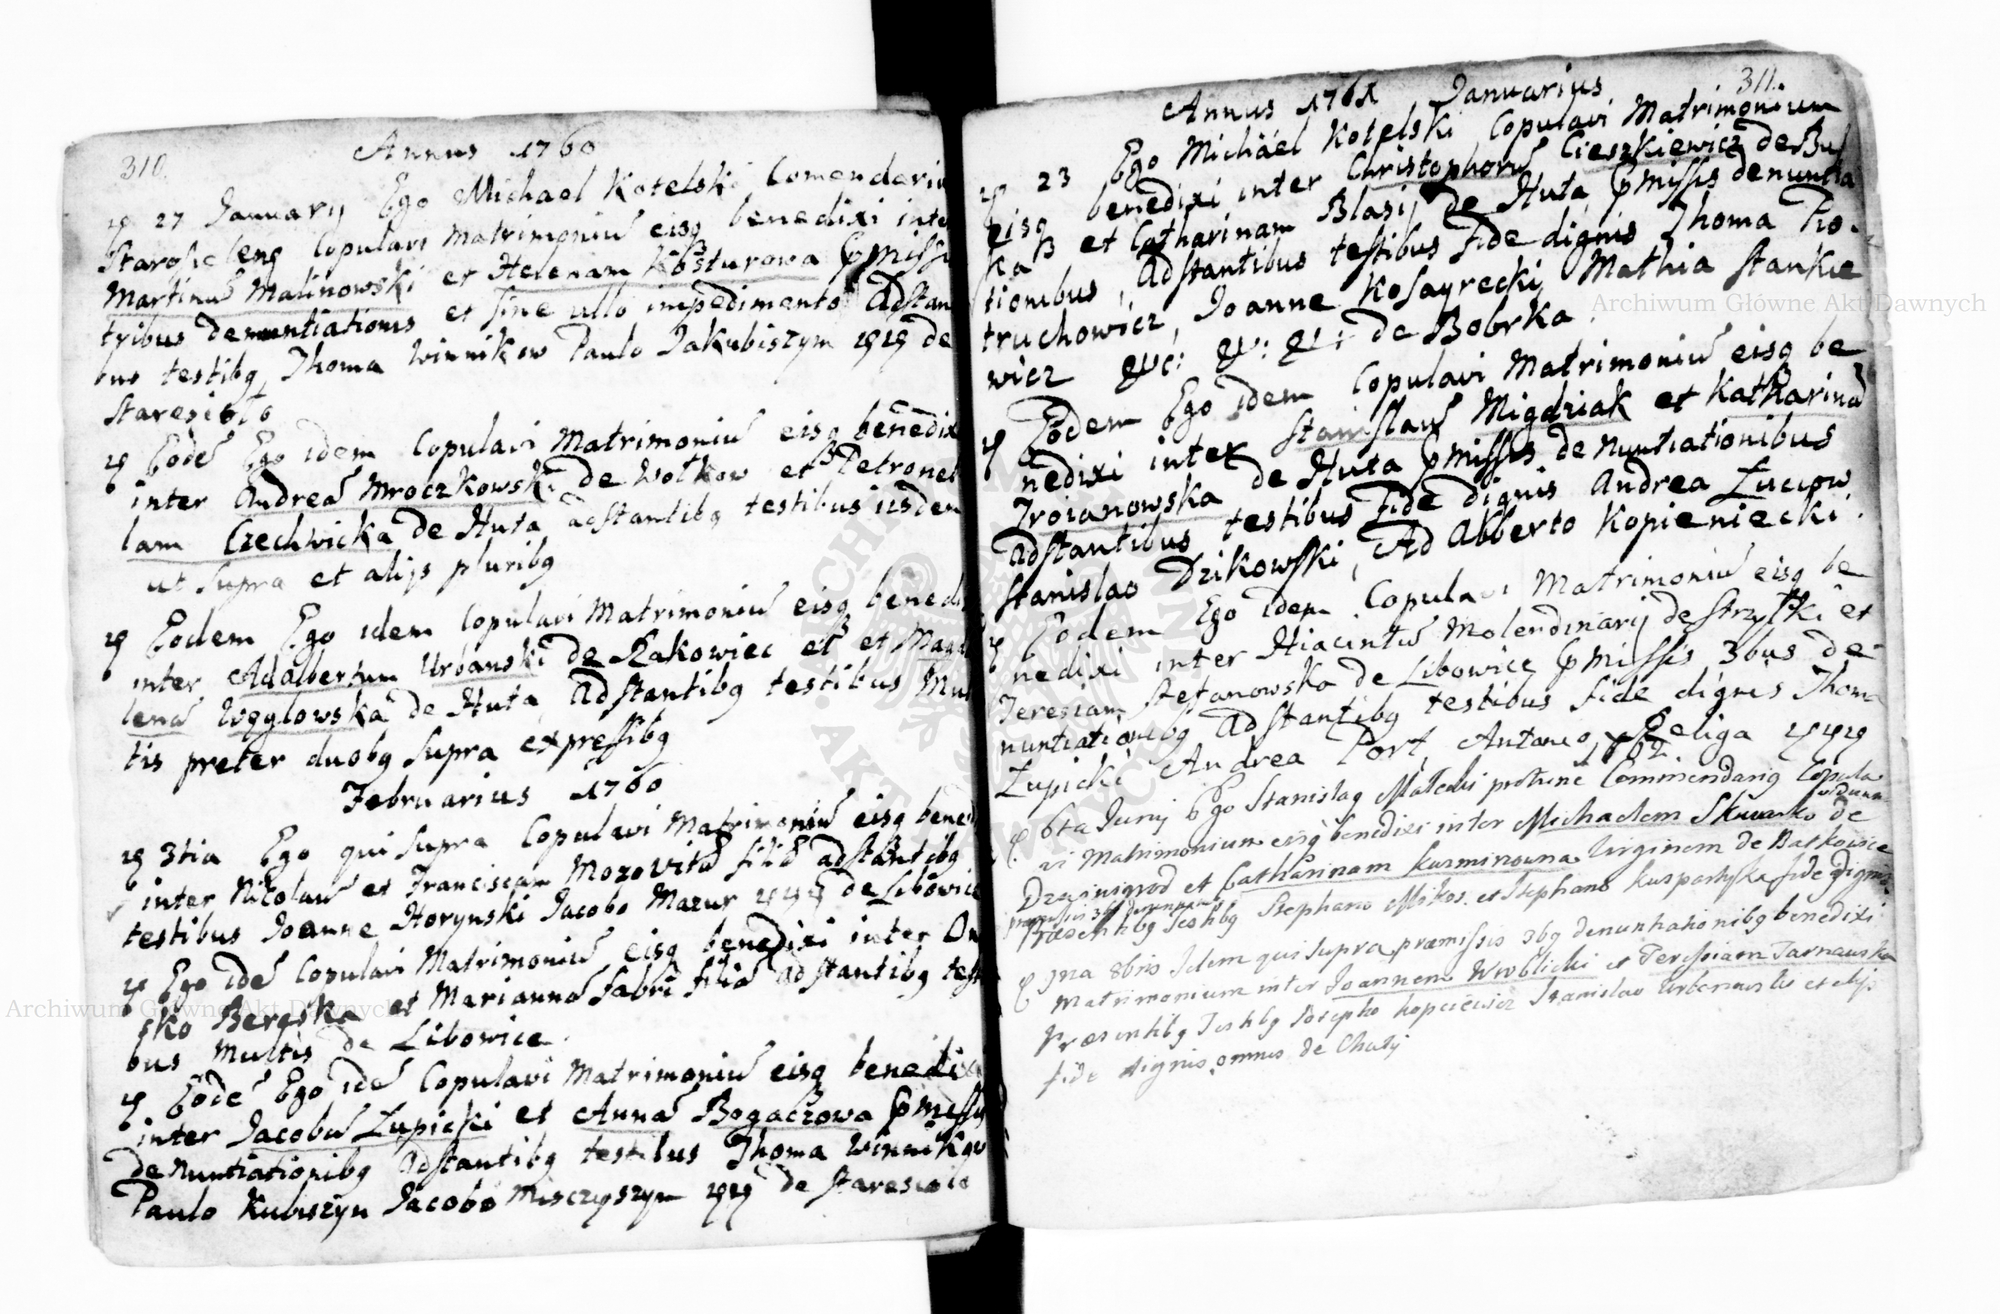 310.
Annus 1760
27 January Ego Michael Kotelski Comendarius
Starosieleng Copulavi Matrimoniu eisq benedixi inter
Martinu Malinowski et Helenam Kosturowa pmissi
tribus denuntiationis et sine ullo impedimento Adstan
bus testibq Thoma Winnikow Paulo Jakubiszym de
Staresioło
Eode Ego idem Copulavi Matrimoniu eisq benedixi
inter Andrea Mroczkowski de Wołkow et Petronel
lam Czechwicka de Huta adstantibq testibus iisdem
ut supra et alijs pluribq
Eodem Ego idem Copulavi Matrimoniu eisq benedi
inter Adalbertum Urbanski de et Magda
lena de Huta Adstantibq testibus Mul
tis preter duobq supra expressibq
Februarius 1760
3tia Ego qui supra Copulavi Matrimoniu eisq bened
inter Nikolau et Franciscam filia adstantibq
testibus Joanne Horynski Jacobo Mazur de Libowice
Ego ide Copulavi Matrimoniu eisq benedixi inter On
sko Bereska et Marianna Fabri filia adstantibq testi
bus Multis de Libowice
Eode Ego ide Copulavi Matrimoniu eisq benedixi
inter Jacobu Łupicki et Anna Bogaczowa pmissis
denuntiationibq adstantibq testibus Thoma Winnikow
Paulo Kubiszyn Jacobo Misczyszym de Staresioło
311.
Annus 1761 Januarius
23 Ego Michael Kotelski Copulavi Matrimonium
eisq benedixi inter Christophoru Cieszkiewicz de
et Catharinam Blasij de Huta pmissis denuntia
tionibus, Adstantibus testibus fide dignis Thoma Pio
truchowicz, Joanne Kosagrecki Mathia Stankie
wicz &c: &: &: de Bobrka
Eodem Ego idem Copulavi Matrimoniu eisq be
nedixi inter Stanislau Migdziak et Katharina
Troianowska de Huta pmissis denuntiationibus
Adstantibus testibus fide dignis Andrea Łuciow
Stanislao Dzikowski, Ad Alberto Kopieniecki
Eodem Ego idem Copulavi Matrimoniu eisq be
nedixi inter Hiacintu Molendinarij de Strzyłki et
Teresiam Stefanowska de Libowice pmissis 3bus de
nuntiationibq Adstantibq testibus fide dignis Thoma
Łupicki Andrea Port, Antonio Geliga
6ta Junij Ego Stanislaq protunc Commendariq Copula
vi Matrimonium eisq benedixi inter Michaelem Skwarko de
Dzwinigrod et Catharinam Kusminowna Virginem de Batkowice
Praesentibq Testibq Stephano Mikos et Stephano fide dignis
8bris Idem qui supra praemissis 3bq denuntiationibq benedixi
Matrimonium inter Joannem Wroblicki et Teressiam Tarnawska
Praesentibq Testibq Josepho Stanislao et alijs
fide dignis omnis de
Archiwum Główne Akt Dawnych
Archiwum Główne Akt Dawnych